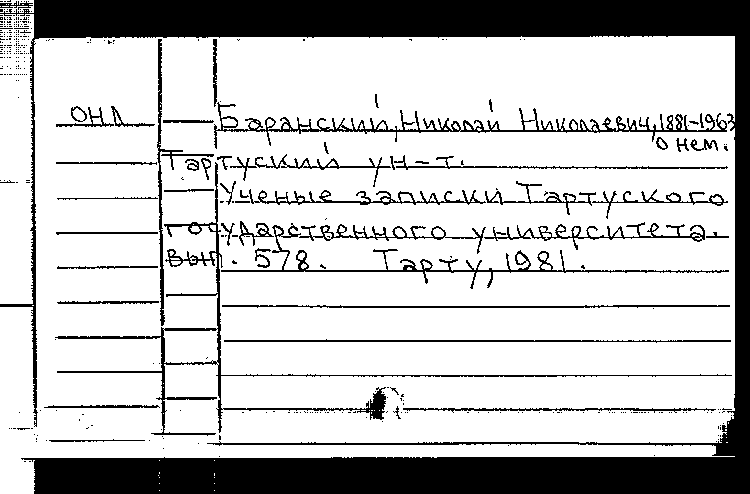 ОНЛ
Баранский, Николай Николаевич, 1881-1963
о нем.
Тартуский ун-т.
Ученые записки Тартуского
государственного университета.
вып. 578. Тарту, 1981.